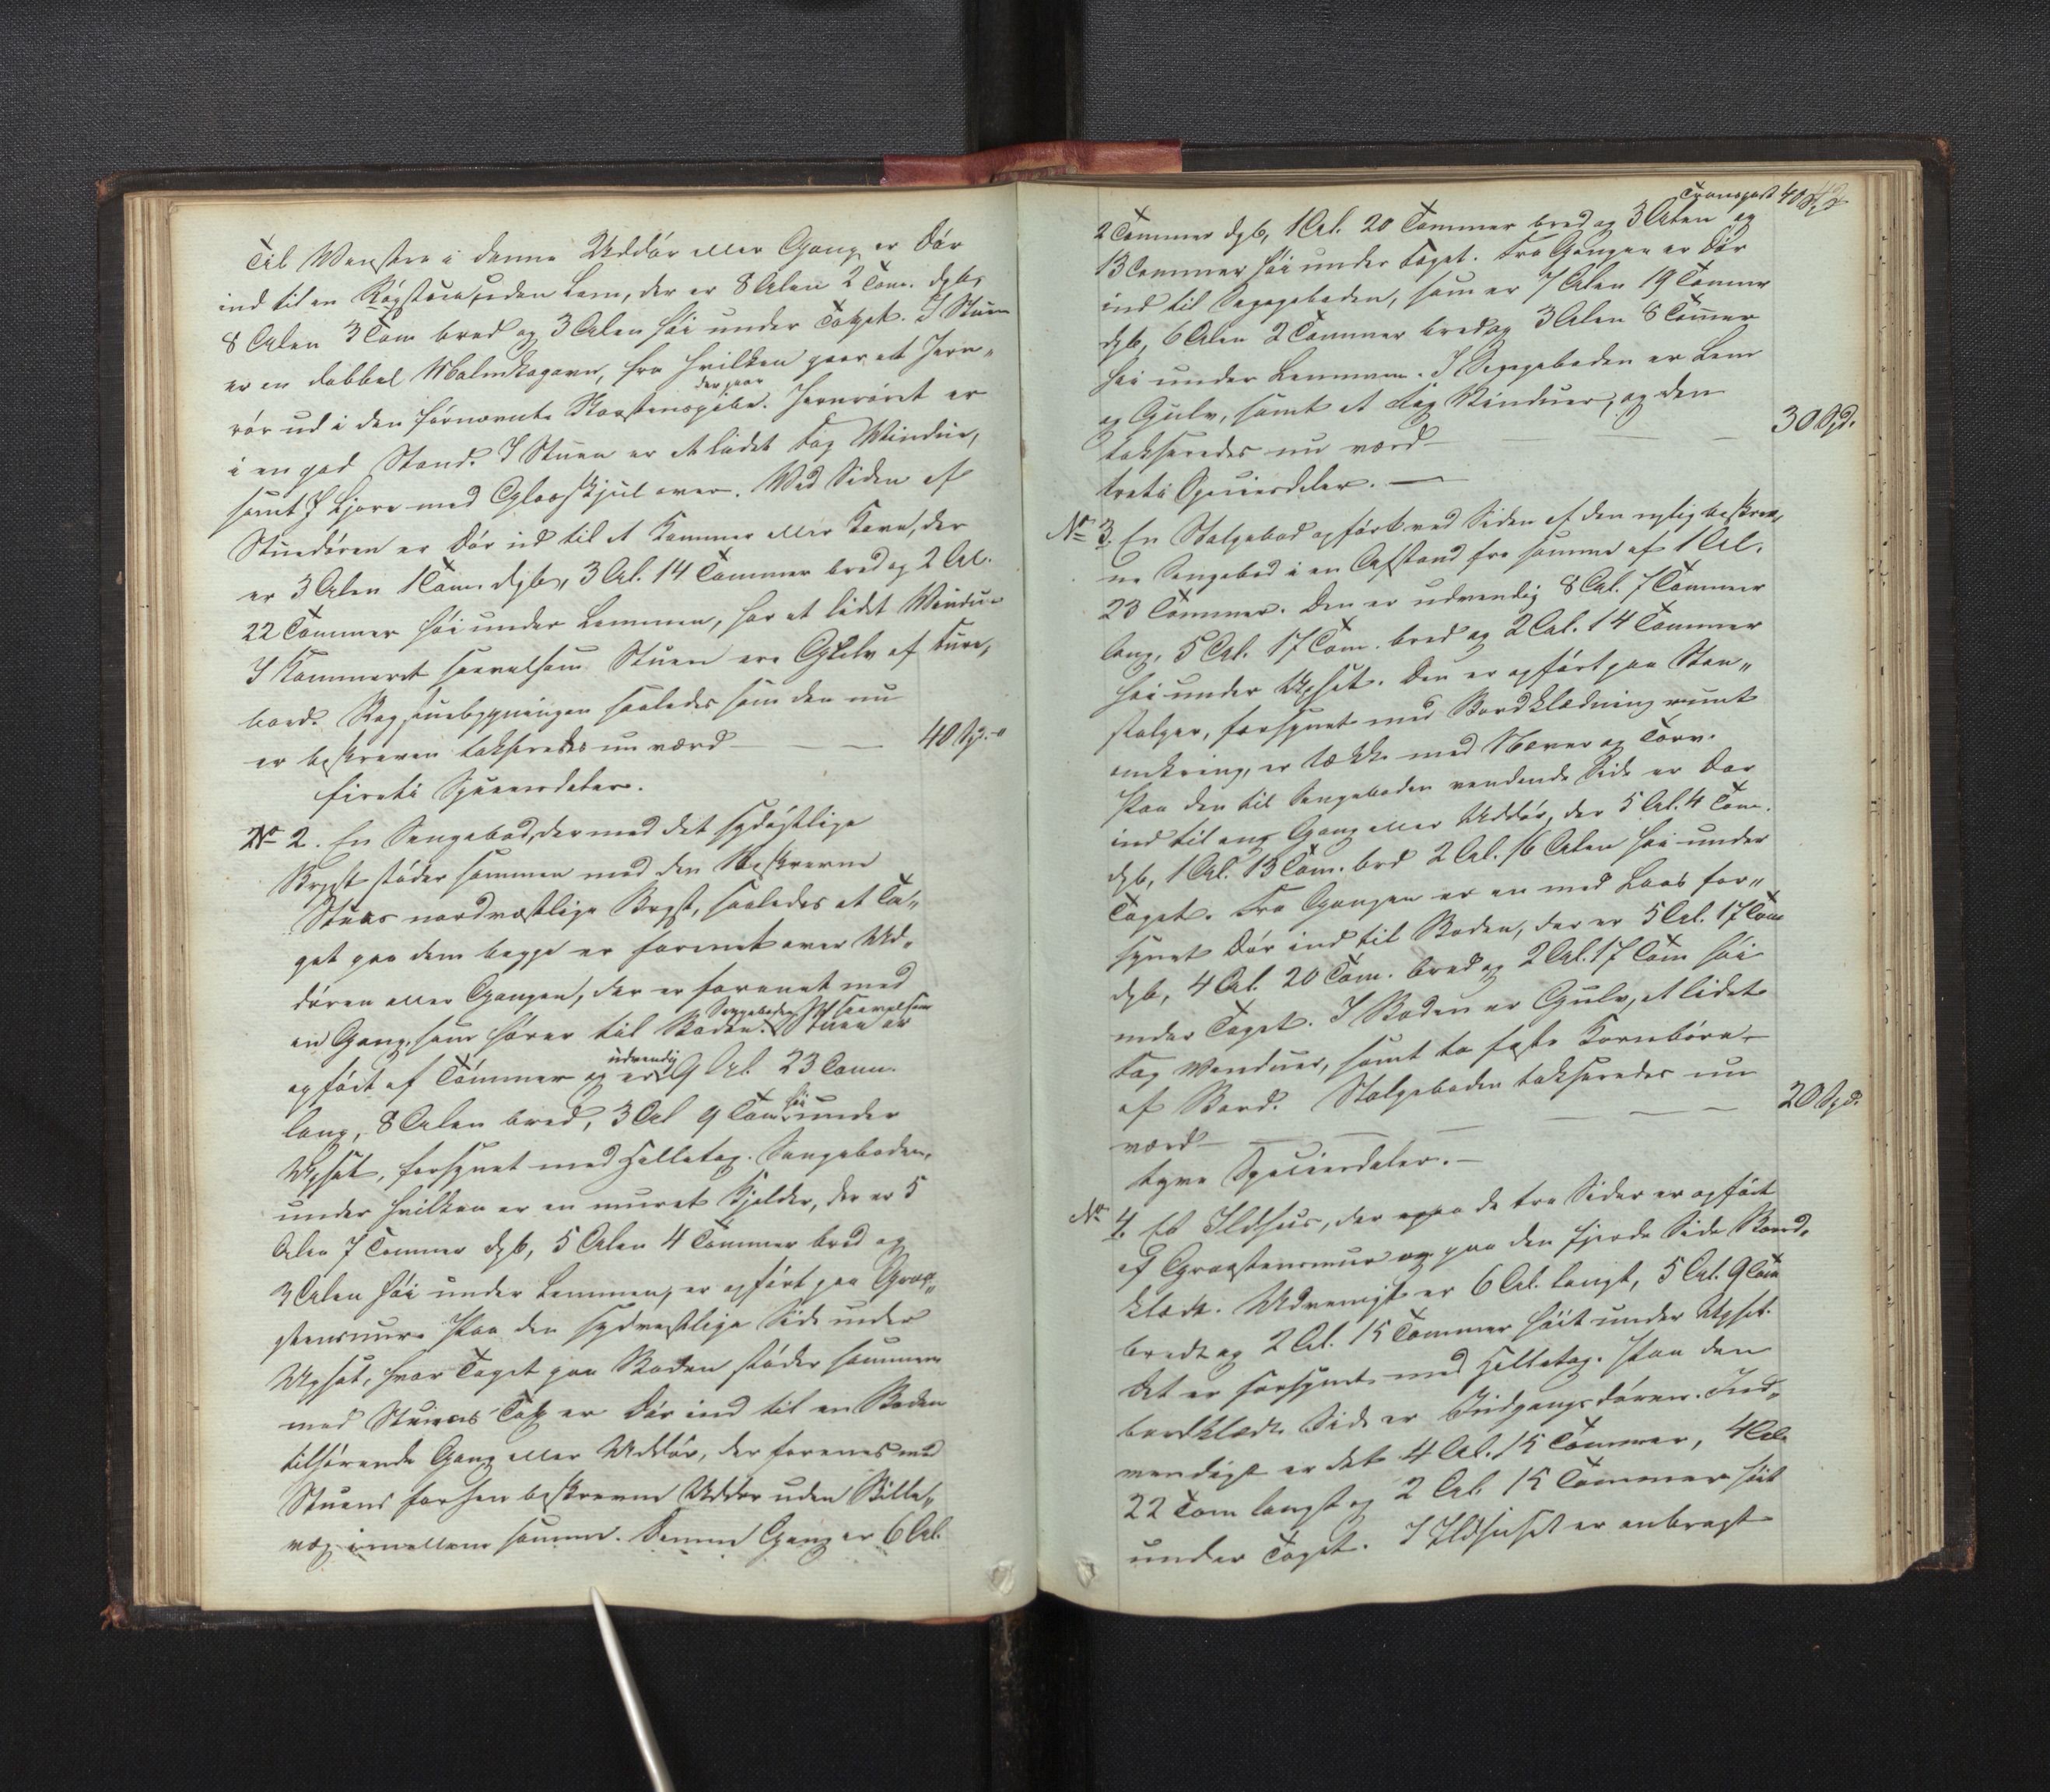 Til Venstre i denne Uddør eller Gang er Dør
ind til en Røgstue uden Lem, der er 8 Alen 2 Tom. dyb,
8 Alen 3 Tom bred og 3 Alen høi under Taget. I Stuen
er en dobbel Kakelovn, fra hvilken gaar et Jern„
rør ud i denførnævnte Graastenspibe. Jernrøret er
i en god Stand. I Stuen er et lidet Fag Vindue,
samt 1 Ljore med Glasskjul over. Ved Siden af
Stuedøren er Dør ud til et Kammer eller Kove, der
er 3 Alen 1 Tom. dyb, 3 Al. 14 Tommer bred og 2 Al.
22 Tommer høi under Lemmen, har et lidet Vindue
I Kammeret saavelsom Stuen ere Gulv af Fure,
bord. Røgstuebygningen saaledes som den nu
er beskreven taxeredes nu værd — — — 40 Spd.
fireti Speciesdaler.
No 2. En Sengebod, der med det sydøstlige
Bryst støder sammen med den beskrevne
Stues nordvestlige Bryst, saaledes at Ta„
get paa dem begge er forenet over Ud„
døren eller Gangen, der er forenet med
en Gang, som hører til Boden. Sengeboden saavelsom Stuen er
opført af Tømmer og er udvendig 9 Al. 23 Tom.
lang, 8 Alen bred, 3 Al 9 Tom høi under
Upset, forsynet med Helletag. Sengeboden,
under hvilken er en muret Kjelder, der er 5
Alen 7 Tommer dyb, 5 Alen 4 Tommer bred og
3 Alen høi under Lemmen, er opført paa Graa„
steensmur. Paa den sydvestlige Side under
Upset, hvor Taget paa Boden støder sammen
med Stuens Tag er Dør ind til en Boden
tilhørende Gang eller Uddør, der forenes med
Stuens forhen beskrevne Uddør uden Skille„
væg imellem samme. Denne Gang er 6 Al.
Transport 40 Spd.
2 Tommer dyb, 1 Al. 20 Tommer bred og 3 Alen og
13 Tommer høi under Taget. Fra Gangen er Dør
ind til Sengeboden, som er 7 Alen 19 Tommer
dyb, 6 Alen 2 Tommer bred og 3 Alen 8 Tommer
høi under Lemmen. I Sengeboden er Lem
og Gulv, samt et Fag Vinduer, og den
taxeredes nu værd — — — 30 Spd.
treti Speciesdaler. —
No 3. En Stolpebod opført ved Siden af den nylig beskrev„
ne Sengebod i en Afstand fra samme af 1 Al.
23 Tommer. Den er udvendig 8 Al. 7 Tommer
lang, 5 Al. 17 Tom. bred og 2 Al. 14 Tommer
høi under Upset. Den er opført paa Sten„
stolper, forsynet med Bordklædning rundt
omkring, er tækket med Næver og Torv.
Paa den til Sengeboden vendende Side er Dør
ind til en Gang eller Uddør, der 5 Al. 4 Tom.
dyb, 1 Al. 13 Tom. bred 2 Al. 16 Alen høi under
Taget. Fra Gangen er en med Laas for„
synet Dør ind til Boden, der er 5 Al. 17 Tom
dyb, 4 Al. 20 Tom. bred og 2 Al. 17 Tom høi
under Taget. I Boden er Gulv, et lidet
Fag Vinduer, samt to faste Kornbører
af Bord. Stolpeboden taxeredes nu
værd — — — — — 20 Spd.
tyve Speciesdaler. —
No 4. Et Ildhus, der paa de tre Sider er opført
af Graasteensmur og paa den fjerde Side Bord„
klædt. Udvendigt er 6 Al. langt, 5 Al. 9 Tom
bredt og 2 Al. 15 Tommer høit under Upset.
Det er forsynet med Helletag. Paa den
bordklædte Side er Indgangsdøren. Ind„
vendigt er det 4 Al. 15 Tommer, 4 Al.
22 Tom langt og 2 Al. 15 Tommer høit
under Taget. I Ildhuset er anbragt